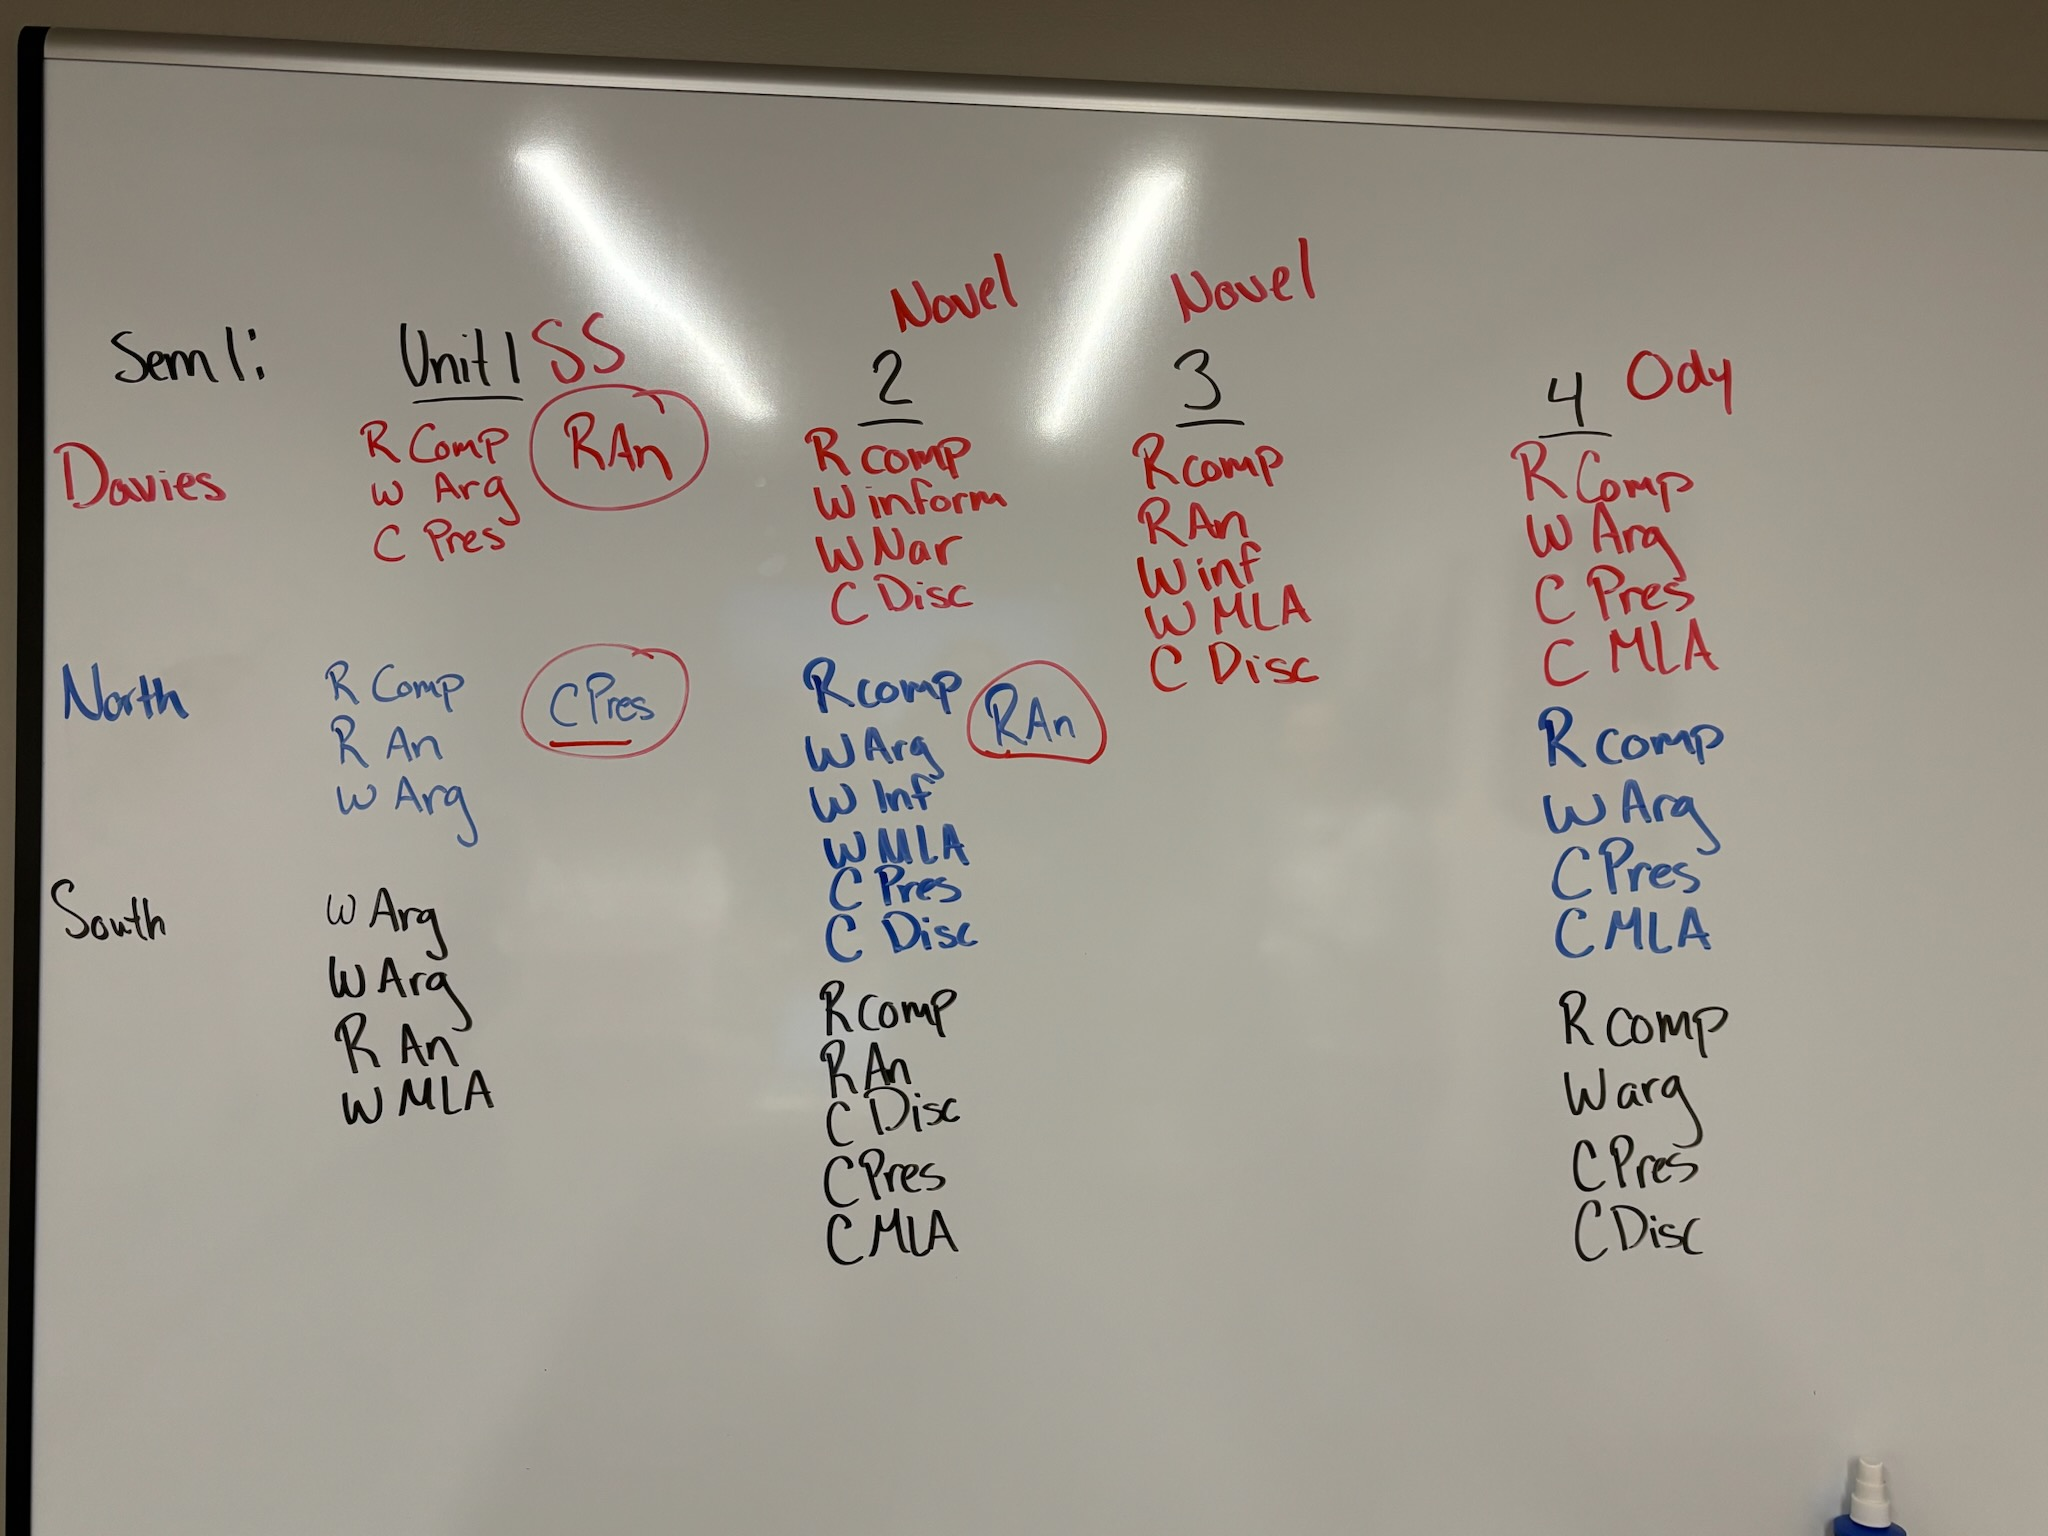 Novel Novel
Sem 1: Unit 1 SS 2 3 4 Ody
Davies
R Comp RAn
W Arg
C Pres
R comp
W inform
W Nar
C Disc
R comp
R An
W inf
W MLA
C Disc
R Comp
W Arg
C Pres
C MLA
North
R Comp C Pres
R An
W Arg
R comp RAn
W Arg
W Inf
W MLA
C Pres
C Disc
R comp
W Arg
C Pres
C MLA
South
W Arg
W Arg
R An
W MLA
R comp
R An
C Disc
C Pres
C MLA
R comp
W arg
C Pres
C Disc